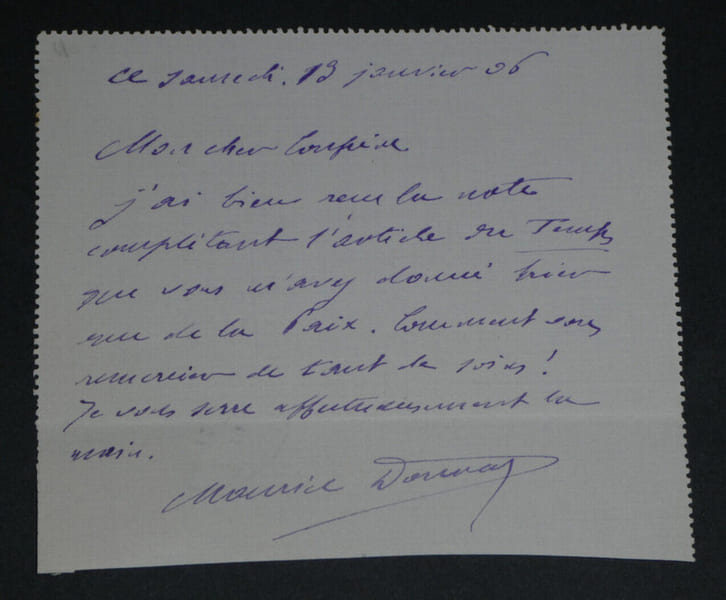 ce samedi. 13 janvier 06
Mon cher Confrère
j'ai bien reçu la note
complétant l'article du Temps
que vous m'avez donné hier
rue de la Paix. Comment vous
remercier de tant de soins !
Je vous serre affectueusement la
main.
Maurice Donnay